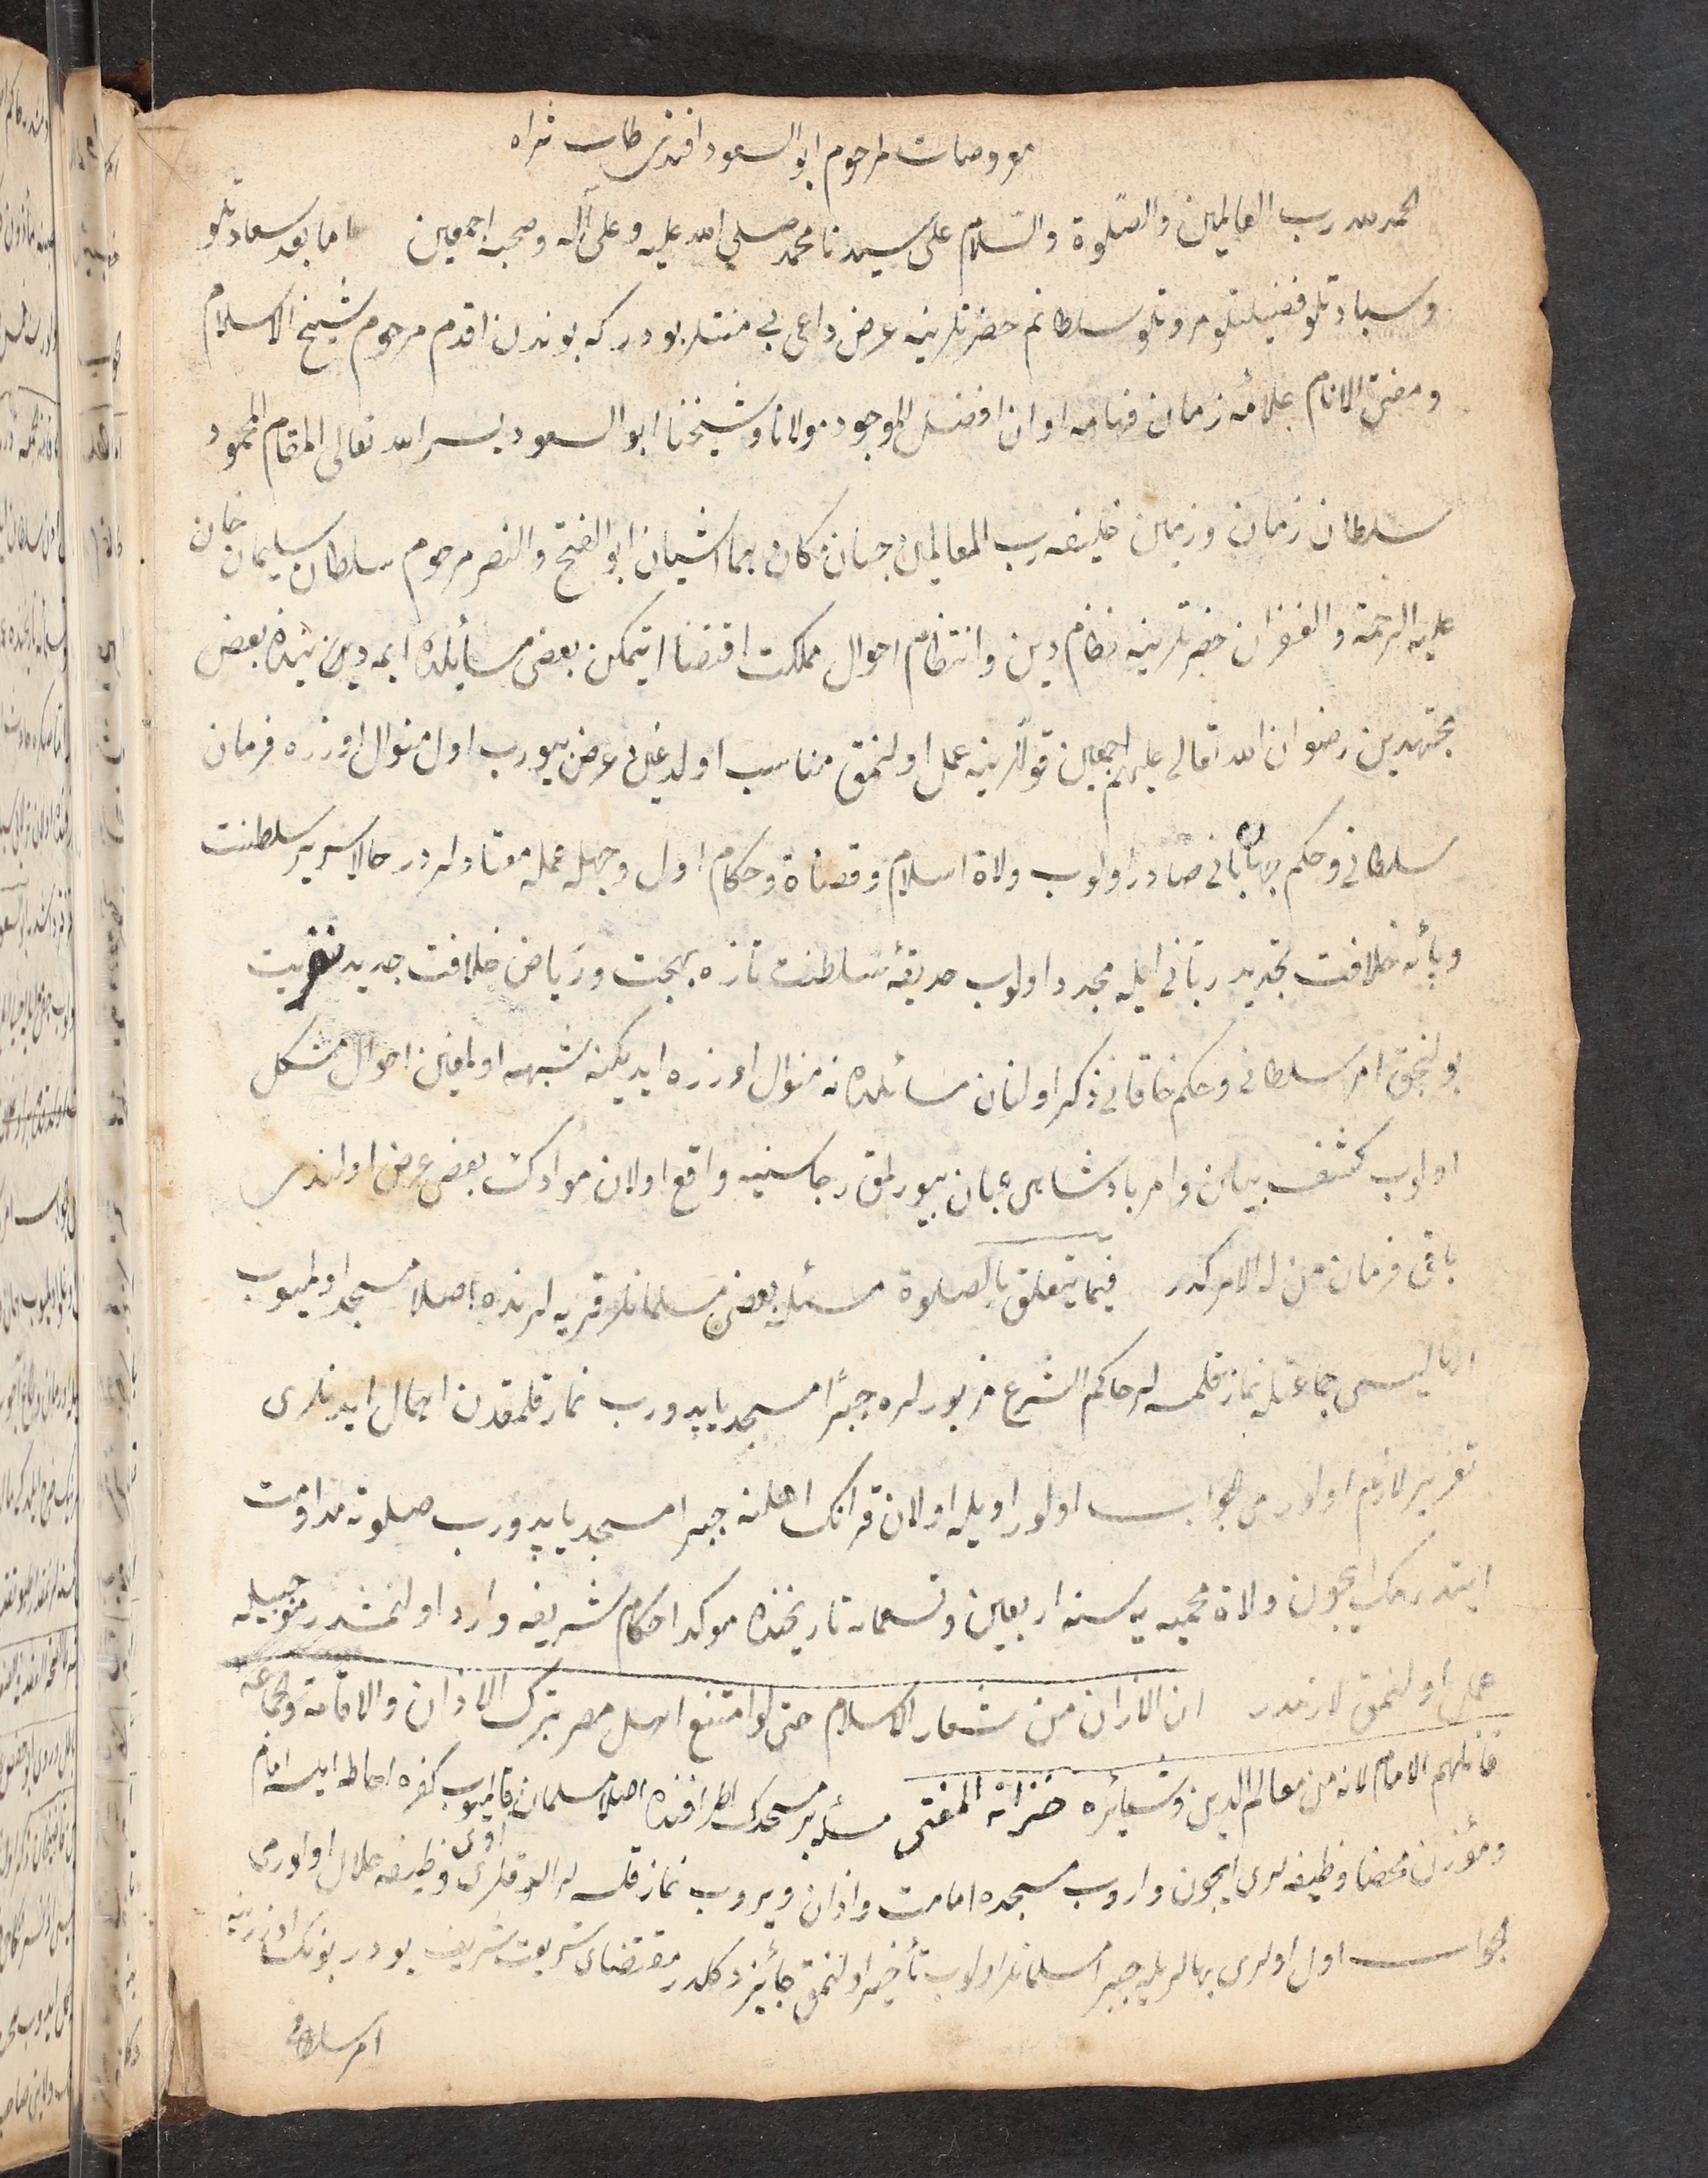 معروضات مرحوم ابو السعود افندی طاب ثراه
الحمد لله رب العالمین والصّلوة والسّلام علی سیدنا محمد صلی الله علیه وعلی آله وصحبه اجمعین اما بعد سعادتلو
وسیادتلو فضیلتلو مروتلو سلطانم حضرتلرینه عرض داعی بی منتلر بودر که بوندن اقدم مرحوم شیخ الاسلام
ومفتی الانام علامۀ زمان فهامه اوان افضل الموجود مولانا وشیخنا ابو السعود یسر الله تعالی المقام المحمود
سلطان زمان وزمین خلیفه رب العالمین جنان مکان هما آشیان ابو الفتح والنصر مرحوم سلطان سلیمان خان
علیه الرحمة والغفران حضرتلرینه نظام دین وانتظام احوال مملکت اقتضا ایتمکن بعض مسایلده ایمه دین بیننده بعض
مجتهدین رضوان الله تعالی علیهم اجمعین قوللرینه عمل اولنمق مناسب اولدیغن عرض بیورب اول منوال اوزره فرمان
سلطانی وحکم جهانبانی صادر اولوب ولاة اسلام وقضاة وحکام اول وجهله عمله معتادلردر حالا سریر سلطنت
وپایۀ خلافت تجدید ربانی ایله مجدد اولوب حدیقۀ سلطنت تازه بهجت وریاض خلافت جدید
بولنجق امر سلطانی وحکم خاقانی ذکر اولنان مسائلده نه منوال اوزره ایدیکنه شبهه اولمغین احوال مشکل
اولوب کشف بیان وامر پادشاهی عیان بیورلمق رجاسنه واقع اولان موادک بعض عرض اولندی
باقی فرمان من له الامرکدر فیما یتعلق بالصلوة مسئله بعض مسلمانلر قریه لرنده اصلا مسجد اولمیوب
اهالیسی جماعتله نماز قلمسه لر حاکم الشرع مزبورلره جبرا مسجد یاپدورب نماز قلمقدن اهمال ایدنلری
تعزیر لازم اولورمی الجواب اولور اویله اولان قرانک اهلنه جبرا مسجد یاپدورب صلوته مداومت
ایتدرمک ایچون ولاة محمیه یه سنه اربعین وتسعمائه تاریخنده موکد احکام شریفه وارد اولنمشدر موجبیله
عمل اولنمق لازمدر ان الاذان من شعار الاسلام حتی لو امتنع اهل مصر بترک الاذان والاقامة والجماعة
قاتلهم الامام لانه من معالم الدین وشعائره خزانة المفتی مسئله بر مسجدک اطرافنده اصلا مسلمان قالمیوب کفره احاطه ایلسه امام
ومؤذن محضا وظیفه لری ایچون واروب مسجده امامت واذان ویروب نماز قلسه لر الدقلری وظیفه حلال اولورمی
الجواب اول اولری بهالریله جبرا مسلمانلر اولوب تأخیر اولنمق جائز دکلدر مقتضای شریعت شریف بودر بونک اوزرینه
امر سلطانی